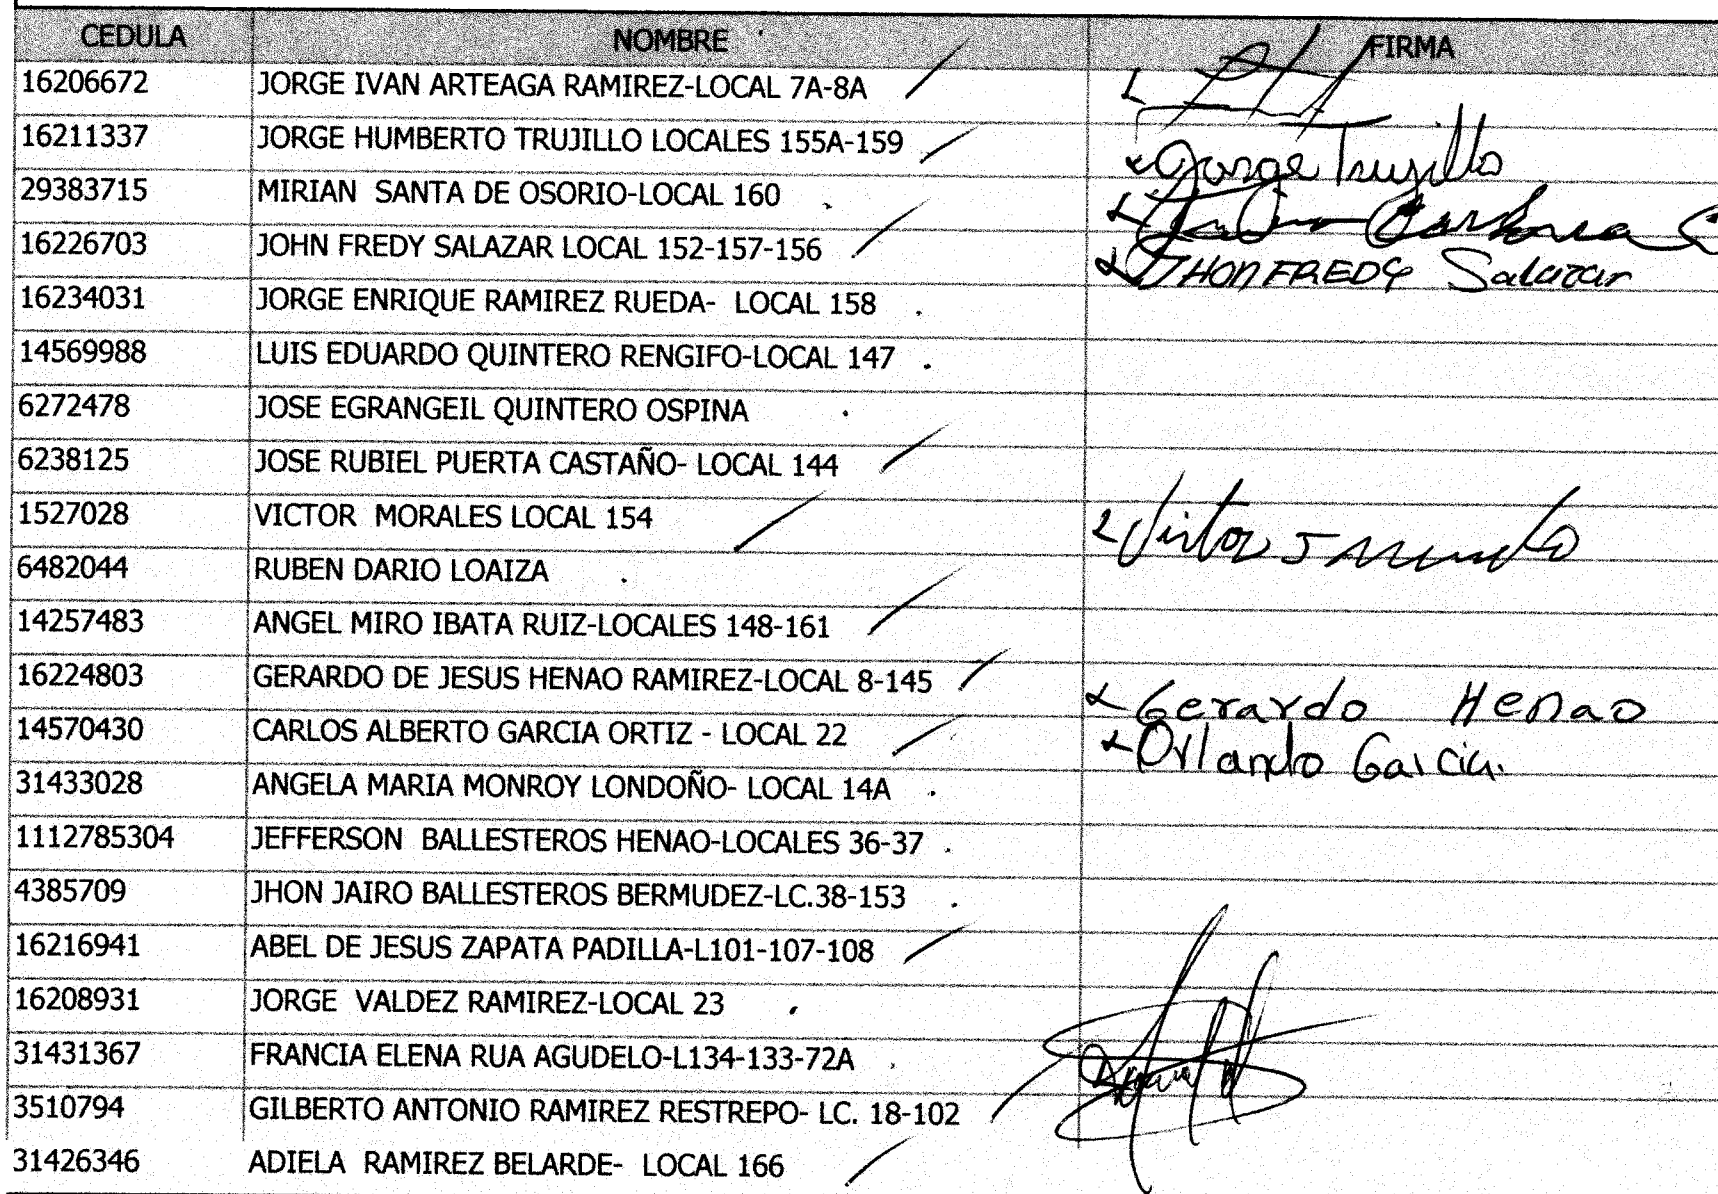 CEDULA NOMBRE FIRMA
16206672 JORGE IVAN ARTEAGA RAMIREZ-LOCAL 7A-8A
16211337 JORGE HUMBERTO TRUJILLO LOCALES 155A-159 Jorge Trujillo
29383715 MIRIAN SANTA DE OSORIO-LOCAL 160
16226703 JOHN FREDY SALAZAR LOCAL 152-157-156 JHON FREDY Salazar
16234031 JORGE ENRIQUE RAMIREZ RUEDA- LOCAL 158
14569988 LUIS EDUARDO QUINTERO RENGIFO-LOCAL 147
6272478 JOSE EGRANGEIL QUINTERO OSPINA
6238125 JOSE RUBIEL PUERTA CASTAÑO- LOCAL 144
1527028 VICTOR MORALES LOCAL 154 Victor
6482044 RUBEN DARIO LOAIZA
14257483 ANGEL MIRO IBATA RUIZ-LOCALES 148-161
16224803 GERARDO DE JESUS HENAO RAMIREZ-LOCAL 8-145 Gerardo Henao
14570430 CARLOS ALBERTO GARCIA ORTIZ - LOCAL 22 Orlando Garcia.
31433028 ANGELA MARIA MONROY LONDOÑO- LOCAL 14A
1112785304 JEFFERSON BALLESTEROS HENAO-LOCALES 36-37
4385709 JHON JAIRO BALLESTEROS BERMUDEZ-LC.38-153
16216941 ABEL DE JESUS ZAPATA PADILLA-L101-107-108
16208931 JORGE VALDEZ RAMIREZ-LOCAL 23
31431367 FRANCIA ELENA RUA AGUDELO-L134-133-72A
3510794 GILBERTO ANTONIO RAMIREZ RESTREPO- LC. 18-102
31426346 ADIELA RAMIREZ BELARDE- LOCAL 166